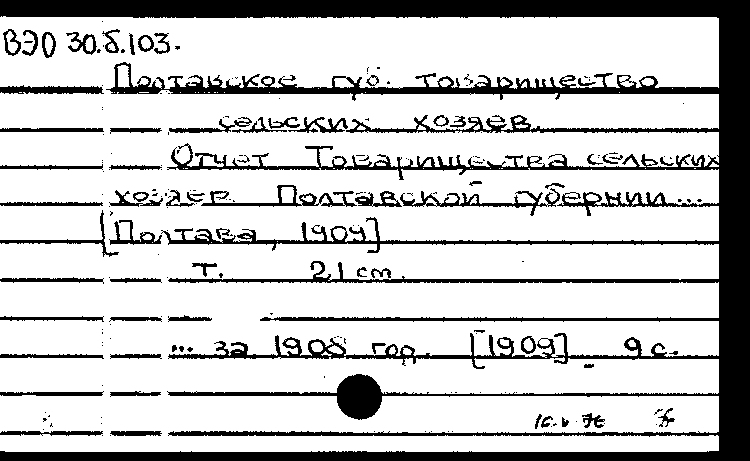 ВЭО 30.Б.103.
Полтавское губ. товарищество
сельских хозяев.
Отчет Товарищества сельских
хозяев Полтавской губернии...
[Полтава, 1909]
т. 21 cm.
... за 1908 год. [1909] 9 с.